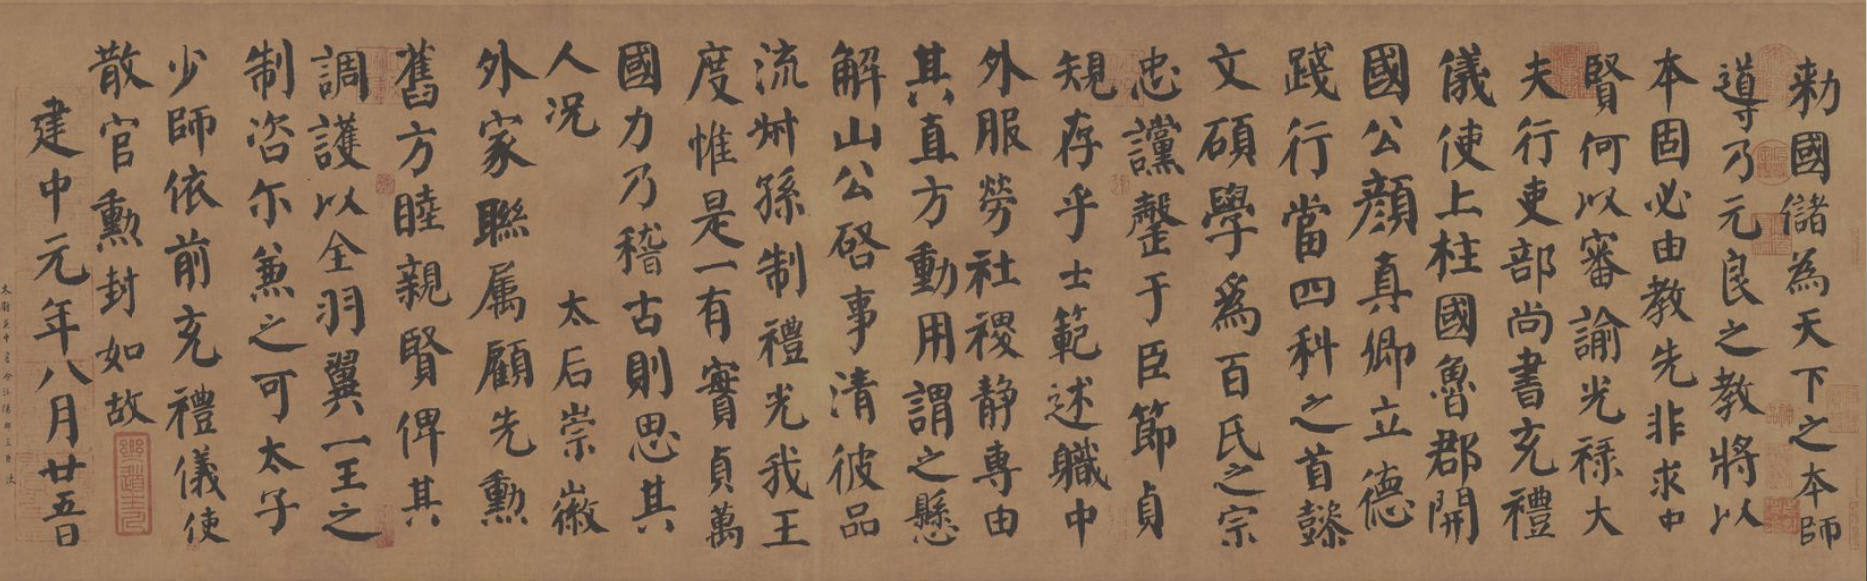 勑國儲為天下之本師
導乃元良之教將以
本固必由教先非求中
賢何以審諭光祿大
夫行吏部尚書充禮
儀使上柱國魯郡開
國公顏真卿立德
踐行當四科之首懿
文碩學為百氏之宗
忠讜罄于臣節貞
規存乎士範述職中
外服勞社稷静專由
其直方動用謂之懸
解山公啓事清彼品
流叔孫制禮光我王
度惟是一有實貞萬
國力乃稽古則思其
人况 太后崇徽
外家聯属顧先勲
舊方睦親賢俾其
調護以全羽翼一王之
制咨尔兼之可太子
少師依前充禮儀使
散官勳封如故
建中元年八月廿五日